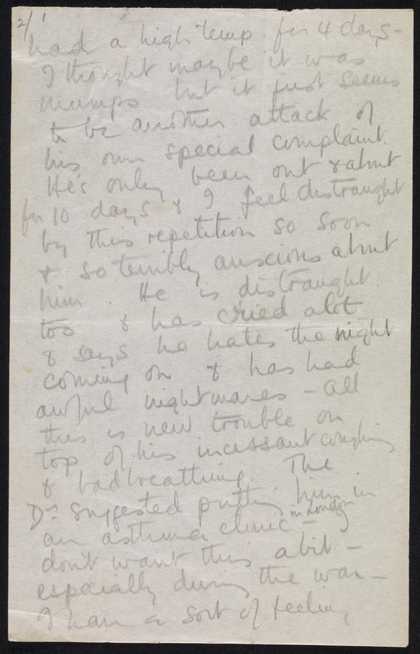 2/
had a high temp. for 4 days -
I thought maybe it was
mumps but it just seems
to be another attack of
his own special complaint.
He's only been out & about
for 10 days & I feel distraught
by this repetition so soon
& so terribly anxious about
him. He is distraught
too & has cried alot
& says he hates the night
coming on & has had
awful nightmares - all
this is new trouble on
top of his incessant coughing
& bad breathing. The
Drs suggested putting him in
an asthma clinic in London -
don't want this a bit -
especially during the war -
I have a sort of feeling